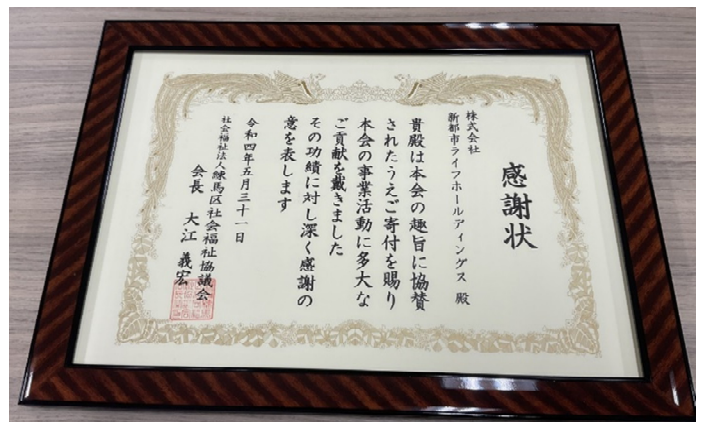 感謝状
株式会社
新都市ライフホールディングス 殿
貴殿は本会の趣旨に協賛
されたうえご寄付を賜り
本会の事業活動に多大な
ご貢献を戴きました
その功績に対し深く感謝の
意を表します
令和四年五月三十一日
社会福祉法人練馬区社会福祉協議会
会長 大江義宏